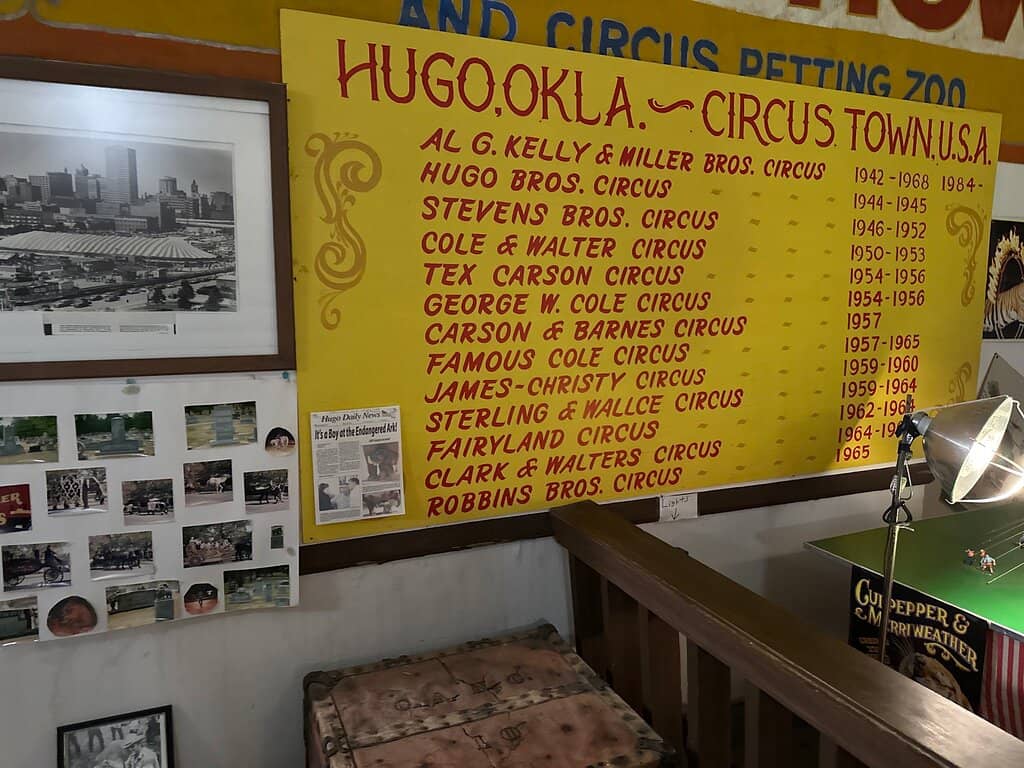 HOW
AND CIRCUS PETTING ZOO
HUGO, OKLA. ~ CIRCUS TOWN, U.S.A.
AL G. KELLY & MILLER BROS. CIRCUS 1942-1968 1984-
HUGO BROS. CIRCUS 1944-1945
STEVENS BROS. CIRCUS 1946-1952
COLE & WALTER CIRCUS 1950-1953
TEX CARSON CIRCUS 1954-1956
GEORGE W. COLE CIRCUS 1954-1956
CARSON & BARNES CIRCUS 1957
FAMOUS COLE CIRCUS 1957-1965
JAMES-CHRISTY CIRCUS 1959-1960
STERLING & WALLCE CIRCUS 1959-1964
FAIRYLAND CIRCUS
CLARK & WALTERS CIRCUS
ROBBINS BROS. CIRCUS 1965
Hugo Daily News
It's a Boy at the Endangered Ark!
CULPEPPER &
MERRIWEATHER